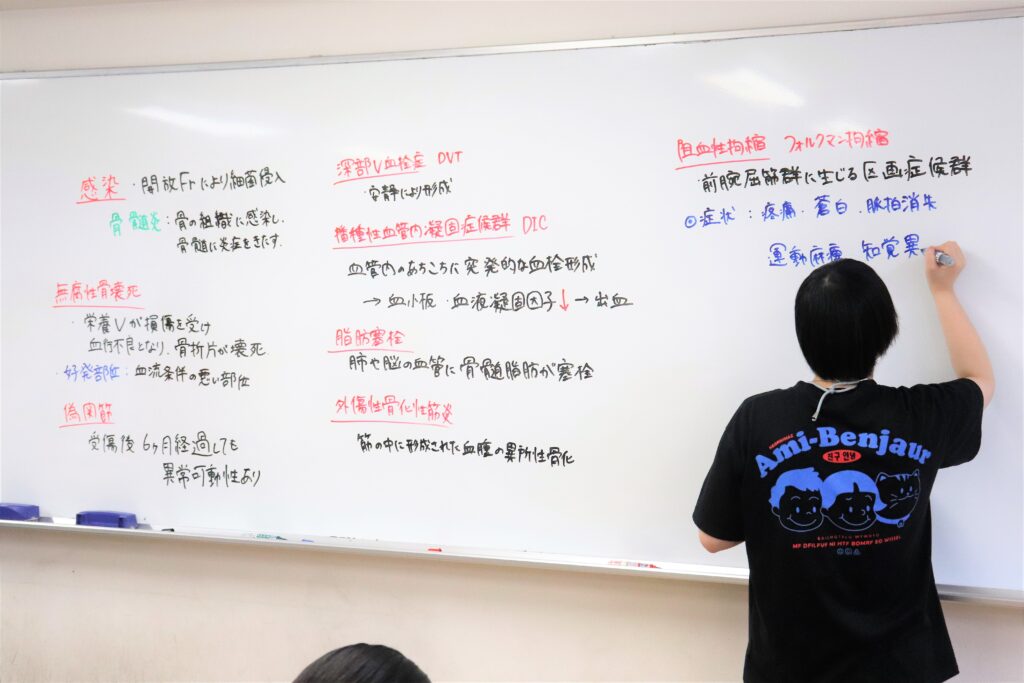 感染 ・開放Frにより細菌侵入
骨髄炎：骨の組織に感染し、
骨髄に炎症をきたす.
無腐性骨壊死
・栄養Vが損傷を受け
血行不良となり、骨折片が壊死.
・好発部位：血流条件の悪い部位
偽関節
受傷後 6ヶ月経過しても
異常可動性あり
深部V血栓症 DVT
・安静により形成
播種性血管内凝固症候群 DIC
血管内のあちこちに突発的な血栓形成
→ 血小板・血液凝固因子↓→ 出血
脂肪塞栓
肺や脳の血管に骨髄脂肪が塞栓
外傷性骨化性筋炎
筋の中に形成された血腫の異所性骨化
阻血性拘縮 フォルクマン拘縮
・前腕屈筋群に生じる区画症候群
◎症状：疼痛・蒼白・脈拍消失
運動麻痺 知覚異
Ami-Benjaur
친구 안녕